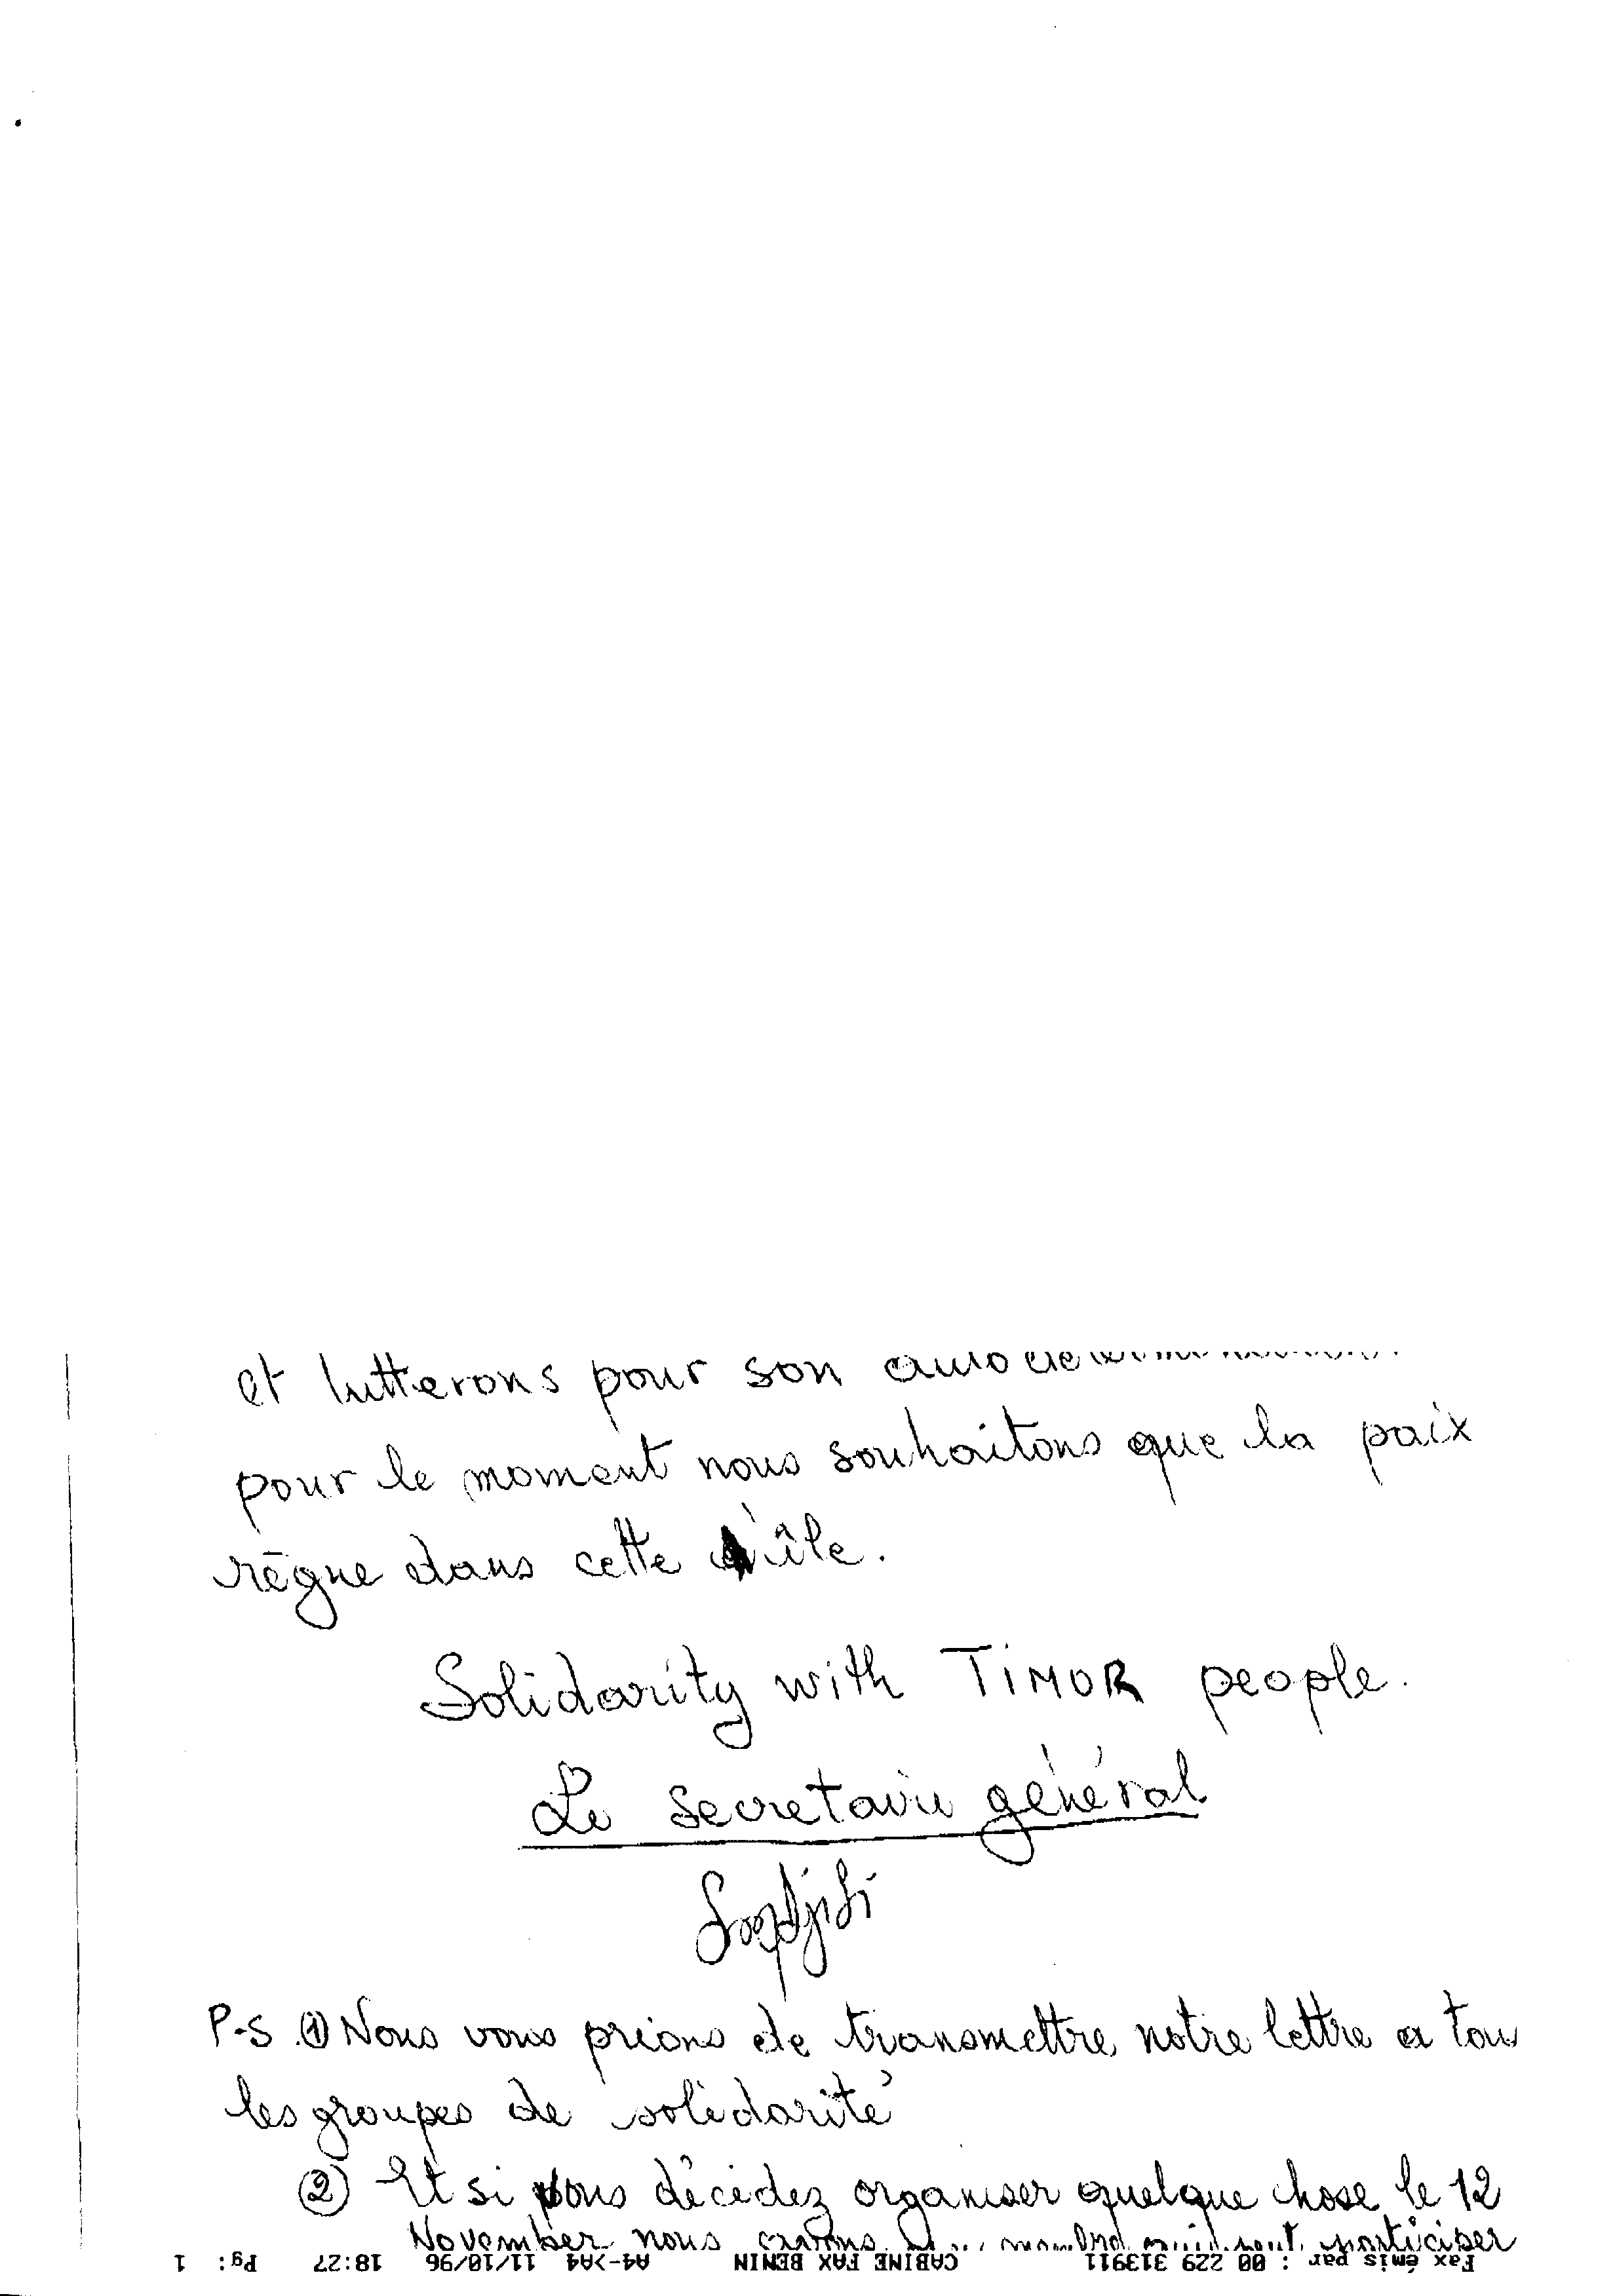 et lutterons pour son
pour le moment nous souhaitons que la paix
règne dans cette île.
Solidarity with TIMOR people.
Le Secretaire général
P-S ① Nous vous prions de transmettre notre lettre a tous
les groupes de solidarité
② Et si vous décidez organiser quelque chose le 12
November nous participer
Fax émis par : 00 229 313911 CABINE FAX BENIN A4->A4 11/10/96 18:27 Pg: 1